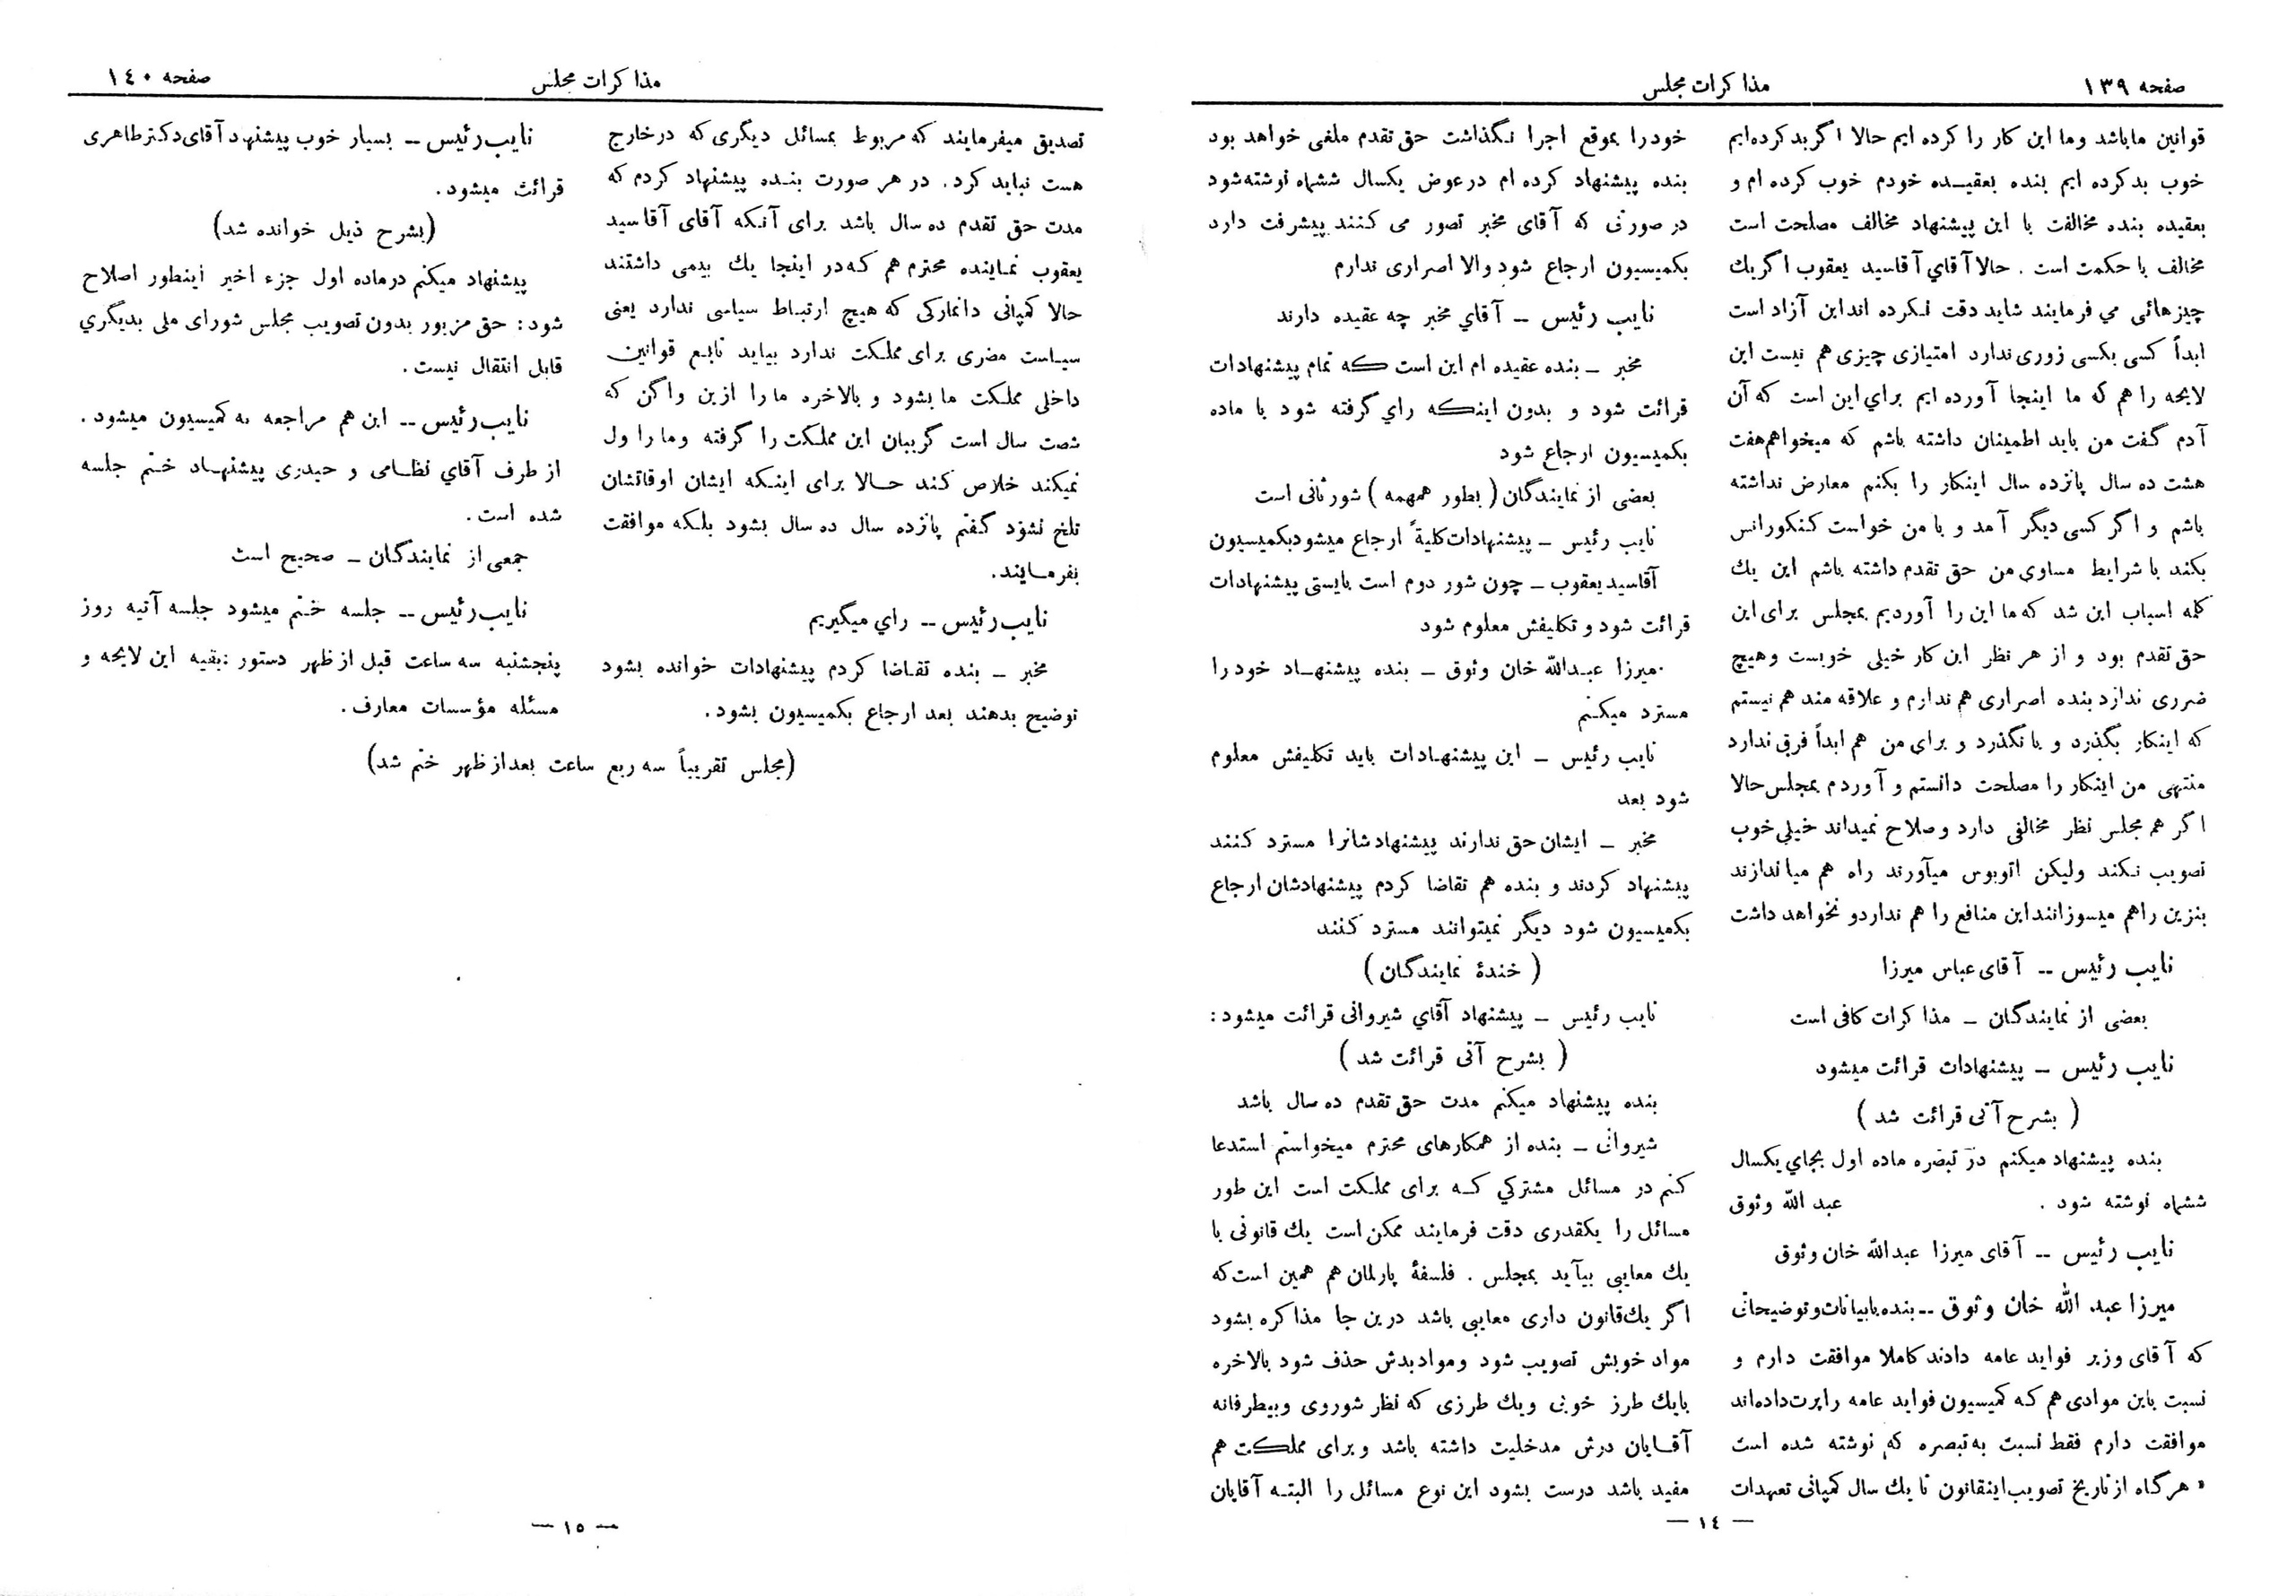 صفحه ۱۳۹
مذاکرات مجلس
قوانین ماباشد وما این کار را کرده ایم حالا اگر بد کرده‌ایم
خوب بد کرده ایم بنده بعقیـده خودم خوب کرده ام و
بعقیده بنده مخالفت با این پیشنهاد مخالف مصلحت است
مخالف با حکمت است . حالا آقاي آقاسید یعقوب اگر یك
چیزهائی می فرمایند شاید دقت نکرده اند این آزاد است
ابداً کسی بکسی زوری ندارد امتیازی چیزی هم نیست این
لایحه را هم که ما اینجا آورده ایم براي این است که آن
آدم گفت من باید اطمینان داشته باشم که میخواهم هفت
هشت ده سال پانزده سال اینکار را بکنم معارض نداشته
باشم و اگر کسی دیگر آمد و با من خواست کنکورانس
بکند با شرایط مساوی من حق تقدم داشته باشم این یك
کلمه اسباب این شد که ما این را آوردیم بمجلس برای این
حق تقدم بود و از هر نظر این کار خیلی خوبست و هیچ
ضرری ندارد بنده اصراری هم ندارم و علاقه مند هم نیستم
که اینکار بگذرد و یا نگذرد و برای من هم ابداً فرق ندارد
منتهی من اینکار را مصلحت دانستم و آوردم بمجلس حالا
اگر هم مجلس نظر مخالفی دارد و صلاح نمیداند خیلی خوب
تصویب نکند ولیکن اتوبوس میآورند راه هم میاندازند
بنزین راهم میسوزانند این منافع را هم ندارد و نخواهد داشت
نایب رئیس -- آقای عباس میرزا
بعضی از نمایندگان - مذاکرات کافی است
نایب رئیس - پیشنهادات قرائت میشود
( بشرح آتی قرائت شد )
بنده پیشنهاد میکنم در تبصره ماده اول بجاي یکسال
ششماه نوشته شود . عبدالله وثوق
نایب رئیس -- آقای میرزا عبدالله خان وثوق
میرزا عبدالله خان وثوق -- بنده با بیانات و توضیحاتی
که آقای وزیر فواید عامه دادند کاملا موافقت دارم و
نسبت باین موادی هم که کمیسیون فواید عامه راپرت داده‌اند
موافقت دارم فقط نسبت به تبصره که نوشته شده است
« هرگاه از تاریخ تصویب اینقانون تا یك سال کمپانی تعهدات
خودرا بموقع اجرا نگذاشت حق تقدم ملغی خواهد بود
بنده پیشنهاد کرده ام در عوض یکسال ششماه نوشته شود
در صورتی که آقای مخبر تصور می کنند پیشرفت دارد
بکمیسیون ارجاع شود والا اصراری ندارم
نایب رئیس - آقاي مخبر چه عقیده دارند
مخبر - بنده عقیده ام این است که تمام پیشنهادات
قرائت شود و بدون اینکه راي گرفته شود با ماده
بکمیسیون ارجاع شود
بعضی از نمایندگان ( بطور همهمه ) شور ثانی است
نایب رئیس - پیشنهادات کلیةً ارجاع میشود بکمیسیون
آقاسید یعقوب - چون شور دوم است بایستی پیشنهادات
قرائت شود و تکلیفش معلوم شود
میرزا عبدالله خان وثوق - بنده پیشنهـاد خود را
مسترد میکنم
نایب رئیس - این پیشنهادات باید تکلیفش معلوم
شود بعد
مخبر - ایشان حق ندارند پیشنهادشانرا مسترد کنند
پیشنهاد کردند و بنده هم تقاضا کردم پیشنهادشان ارجاع
بکمیسیون شود دیگر نمیتوانند مسترد کنند
( خندۀ نمایندگان )
نایب رئیس - پیشنهاد آقاي شیروانی قرائت میشود :
( بشرح آتی قرائت شد )
بنده پیشنهاد میکنم مدت حق تقدم ده سال باشد
شیروانی - بنده از همکارهای محترم میخواستم استدعا
کنم در مسائل مشترکي که برای مملکت است این طور
مسائل را یکقدری دقت فرمایند ممکن است یك قانونی با
یك معایبی بیآید بمجلس . فلسفۀ پارلمان هم همین است که
اگر یك قانون داری معایبی باشد درین جا مذاکره بشود
مواد خوبش تصویب شود و مواد بدش حذف شود بالاخره
بایك طرز خوبی ویك طرزی که نظر شوروی و بیطرفانه
آقـایان درش مدخلیت داشته باشد و برای مملکت هم
مفید باشد درست بشود این نوع مسائل را البته آقایان
— ١٤ —
مذاکرات مجلس
صفحه ١٤٠
تصدیق میفرمایند که مربوط بمسائل دیگری که درخارج
هست نباید کرد. در هر صورت بنده پیشنهاد کردم که
مدت حق تقدم ده سال باشد برای آنکه آقای آقاسید
یعقوب نماینده محترم هم که در اینجا یك بیمی داشتند
حالا کمپانی دانمارکی که هیچ ارتباط سیاسی ندارد یعنی
سیاست مضری برای مملکت ندارد بیاید تابع قوانین
داخلی مملکت ما بشود و بالاخره ما را ازین واگن که
شصت سال است گریبان این مملکت را گرفته وما را ول
نمیکند خلاص کند حـالا برای اینکه ایشان اوقاتشان
تلخ نشود گفتم پانزده سال ده سال بشود بلکه موافقت
بفرمـایند.
نایب رئیس -- راي میگیریم
مخبر - بنده تقاضا کردم پیشنهادات خوانده بشود
توضیح بدهند بعد ارجاع بکمیسیون بشود.
نایب رئیس -- بسیار خوب پیشنهاد آقای دکتر طاهری
قرائت میشود.
(بشرح ذیل خوانده شد)
پیشنهاد میکنم درماده اول جزء اخیر اینطور اصلاح
شود: حق مزبور بدون تصویب مجلس شورای ملی بدیگري
قابل انتقال نیست .
نایب رئیس -- این هم مراجعه به کمیسیون میشود .
از طرف آقاي نظـامی و حیدری پیشنهـاد ختم جلسه
شده است.
جمعی از نمایندگان - صحیح است
نایب رئیس -- جلسه ختم میشود جلسه آتیه روز
پنجشنبه سه ساعت قبل از ظهر دستور :بقیه این لایحه و
مسئله مؤسسات معارف.
(مجلس تقریباً سه ربع ساعت بعد از ظهر ختم شد)
— ١٥ —